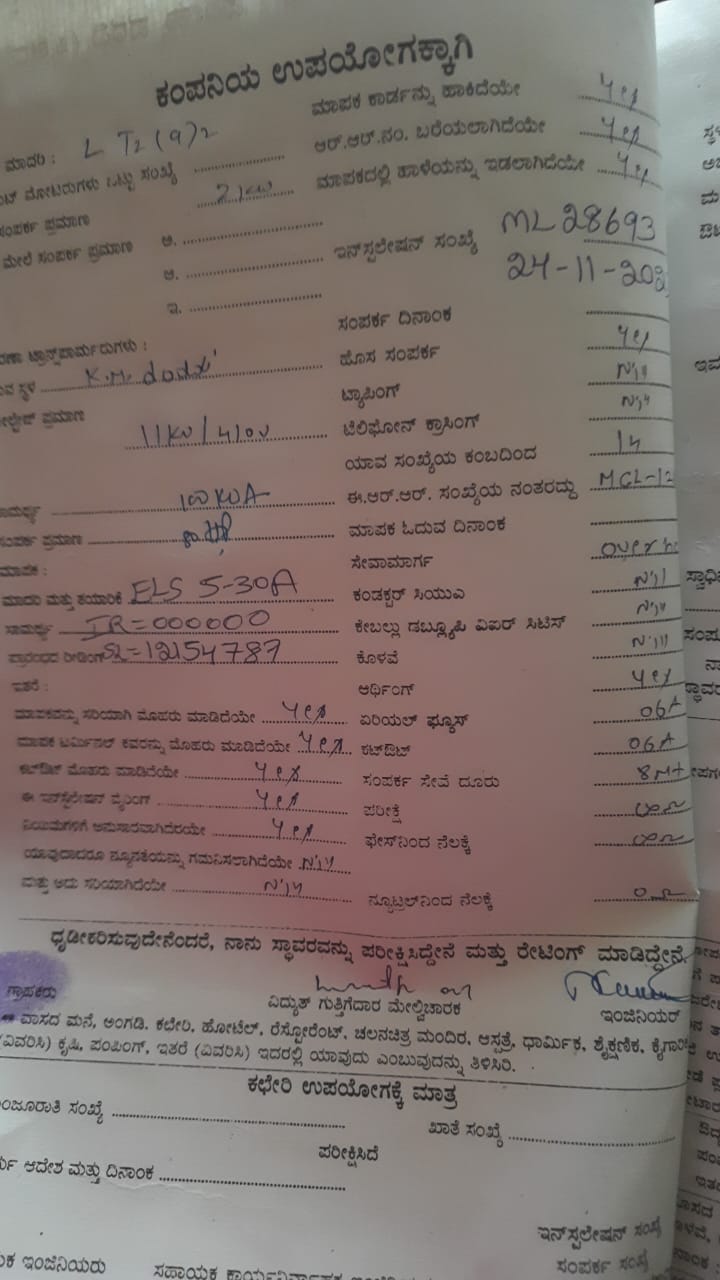 ಕಂಪನಿಯ ಉಪಯೋಗಕ್ಕಾಗಿ
ಮಾದರಿ : LT2(a)2
ಮಾಪಕ ಕಾರ್ಡನ್ನು ಹಾಕಿದೆಯೇ Yes
ಮೋಟರುಗಳು ಒಟ್ಟು ಸಂಖ್ಯೆ
ಆರ್.ಆರ್.ನಂ. ಬರೆಯಲಾಗಿದೆಯೇ Yes
ಸಂಪರ್ಕ ಪ್ರಮಾಣ 2KW
ಮಾಪಕದಲ್ಲಿ ಹಾಳೆಯನ್ನು ಇಡಲಾಗಿದೆಯೇ Yes
ಮೇಲೆ ಸಂಪರ್ಕ ಪ್ರಮಾಣ ಅ.
ಆ.
ಇ.
ಇನ್‌ಸ್ಟಲೇಷನ್ ಸಂಖ್ಯೆ ML 28693
24-11-20
ಸಂಪರ್ಕ ದಿನಾಂಕ
ಟ್ರಾನ್ಸ್‌ಫಾರ್ಮರುಗಳು :
ಹೊಸ ಸಂಪರ್ಕ Yes
ಸ್ಥಳ K.M. doddi
ಟ್ಯಾಪಿಂಗ್ Nil
ಪ್ರಮಾಣ 11KV/410V
ಟೆಲಿಫೋನ್ ಕ್ರಾಸಿಂಗ್ Nil
ಯಾವ ಸಂಖ್ಯೆಯ ಕಂಬದಿಂದ 14
ಸಾಮರ್ಥ್ಯ 100KVA
ಈ.ಆರ್.ಆರ್. ಸಂಖ್ಯೆಯ ನಂತರದ್ದು MCL-12
ಸಂಪರ್ಕ ಪ್ರಮಾಣ
ಮಾಪಕ ಓದುವ ದಿನಾಂಕ
ಮಾಪಕ :
ಸೇವಾಮಾರ್ಗ
ಮಾದರಿ ಮತ್ತು ತಯಾರಿಕೆ ELS 5-30A
ಕಂಡಕ್ಟರ್ ಸಿಯುಎ Nil
ಸಾಮರ್ಥ್ಯ IR=000000
ಕೇಬಲ್ಲು ಡಬ್ಲ್ಯೂಪಿ ವಿಐರ್ ಸಿಟಿಸ್ Nil
ಪ್ರಾರಂಭದ ರೀಡಿಂಗ್ SL=12154787
ಕೊಳವೆ Nil
ಇತರೆ :
ಅರ್ಥಿಂಗ್ Yes
ಮಾಪಕವನ್ನು ಸರಿಯಾಗಿ ಮೊಹರು ಮಾಡಿದೆಯೇ Yes
ಏರಿಯಲ್ ಫ್ಯೂಸ್ 06A
ಮಾಪಕ ಟರ್ಮಿನಲ್ ಕವರನ್ನು ಮೊಹರು ಮಾಡಿದೆಯೇ Yes
ಕಟ್‌ಔಟ್ 06A
ಕಟ್‌ಔಟ್ ಮೊಹರು ಮಾಡಿದೆಯೇ Yes
ಸಂಪರ್ಕ ಸೇವೆ ದೂರು 8Mt
ಈ ಇನ್‌ಸ್ಟಲೇಷನ್ ವೈರಿಂಗ್ Yes
ಪರೀಕ್ಷೆ ∞Ω
ನಿಯಮಗಳಿಗೆ ಅನುಸಾರವಾಗಿದೆಯೇ Yes
ಫೇಸ್‌ನಿಂದ ನೆಲಕ್ಕೆ ∞Ω
ಯಾವುದಾದರೂ ನ್ಯೂನತೆಯನ್ನು ಗಮನಿಸಲಾಗಿದೆಯೇ Nil
ಮತ್ತು ಅದು ಸರಿಯಾಗಿದೆಯೇ Nil
ನ್ಯೂಟ್ರಲ್‌ನಿಂದ ನೆಲಕ್ಕೆ 0Ω
ಧೃಡೀಕರಿಸುವುದೇನೆಂದರೆ, ನಾನು ಸ್ಥಾವರವನ್ನು ಪರೀಕ್ಷಿಸಿದ್ದೇನೆ ಮತ್ತು ರೇಟಿಂಗ್ ಮಾಡಿದ್ದೇನೆ.
ಗ್ರಾಹಕರು ವಿದ್ಯುತ್ ಗುತ್ತಿಗೆದಾರ ಮೇಲ್ವಿಚಾರಕ ಇಂಜಿನಿಯರ್
ವಾಸದ ಮನೆ, ಅಂಗಡಿ. ಕಛೇರಿ, ಹೋಟೆಲ್, ರೆಸ್ಟೋರೆಂಟ್, ಚಲನಚಿತ್ರ ಮಂದಿರ, ಆಸ್ಪತ್ರೆ, ಧಾರ್ಮಿಕ, ಶೈಕ್ಷಣಿಕ,
(ವಿವರಿಸಿ) ಕೃಷಿ, ಪಂಪಿಂಗ್, ಇತರೆ (ವಿವರಿಸಿ) ಇದರಲ್ಲಿ ಯಾವುದು ಎಂಬುವುದನ್ನು ತಿಳಿಸಿರಿ.
ಕಛೇರಿ ಉಪಯೋಗಕ್ಕೆ ಮಾತ್ರ
ಸಂಖ್ಯೆ ಖಾತೆ ಸಂಖ್ಯೆ
ಪರೀಕ್ಷಿಸಿದೆ
ಆದೇಶ ಮತ್ತು ದಿನಾಂಕ
ಇನ್‌ಸ್ಟಲೇಷನ್ ಸಂಖ್ಯೆ
ಇಂಜಿನಿಯರು ಸಹಾಯಕ
ಸಂಪರ್ಕ ಸಂಖ್ಯೆ